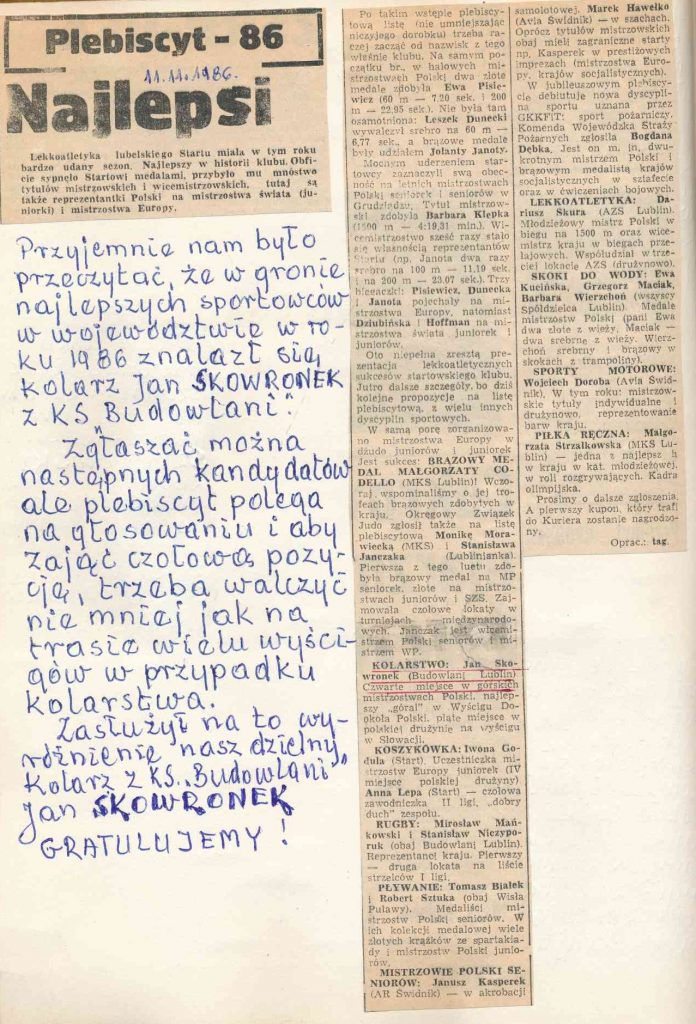 Plebiscyt - 86
11.11.1986.
Najlepsi
Lekkoatletyka lubelskiego Startu miała w tym roku
bardzo udany sezon. Najlepszy w historii klubu. Obfi-
cie sypnęło Startowi medalami, przybyło mu mnóstwo
tytułów mistrzowskich i wicemistrzowskich, tutaj są
także reprezentantki Polski na mistrzostwa świata (ju-
niorki) i mistrzostwa Europy.
Przyjemnie nam było
przeczytać, że w gronie
najlepszych sportowców
w województwie w ro-
ku 1986 znalazł się,
kolarz Jan SKOWRONEK
z KS "Budowlani".
Zgłaszać można
następnych kandydatów
ale plebiscyt polega
na głosowaniu i aby
zająć czołową pozy-
cję, trzeba walczyć
nie mniej jak na
trasie wielu wyści-
gów w przypadku
kolarstwa.
Zasłużył na to wy-
różnienie nasz dzielny
kolarz z KS "Budowlani"
Jan SKOWRONEK
GRATULUJEMY!
Po takim wstępie plebiscy-
tową listę (nie umniejszając
niczyjego dorobku) trzeba ra-
czej zacząć od nazwisk z tego
właśnie klubu. Na samym po-
czątku br., w halowych mi-
strzostwach Polski dwa złote
medale zdobyła Ewa Pisie-
wicz (60 m — 7.20 sek. i 200
m — 22.95 sek.). Nie była tam
osamotniona: Leszek Dunecki
wywalczył srebro na 60 m —
6,77 sek., a brązowe medale
były udziałem Jolanty Janoty.
Mocnym uderzeniem star-
towcy zaznaczyli swą obec-
ność na letnich mistrzostwach
Polski seniorek i seniorów w
Grudziądzu. Tytuł mistrzow-
ski zdobyła Barbara Klępka
(1500 m — 4:19,31 min.). Wi-
cemistrzostwo sześć razy stało
się własnością reprezentantów
Startu (np. Janota dwa razy
srebro na 100 m — 11,19 sek.
i na 200 m — 23.07 sek.). Trzy
Pisiewicz, Dunecka
i Janota pojechały na mi-
strzostwa Europy, natomiast
Dziubińska i Hoffman na mi-
strzostwa świata juniorek i
juniorów.
Oto niepełna zresztą pre-
zentacja lekkoatletycznych
sukcesów startowskiego klubu.
Jutro dalsze szczegóły, bo dziś
kolejne propozycje na listę
plebiscytową, z wielu innych
dyscyplin sportowych.
W samą porę zorganizowa-
no mistrzostwa Europy w
dżudo juniorów i juniorek
Jest sukces: BRĄZOWY ME-
DAL MAŁGORZATY CO-
DELLO (MKS Lublin)! Wczo-
raj wspominaliśmy o jej tro-
feach brązowych zdobytych w
kraju. Okręgowy Związek
Judo zgłosił także na listę
plebiscytowa Monikę Mora-
wiecką (MKS) i Stanisława
Janczaka (Lublinianka).
Pierwsza z tego duetu zdo-
była brązowy medal na MP
seniorek, złote na mistrzo-
stwach juniorów i SZS. Zaj-
mowała czołowe lokaty w
turniejach międzynarodo-
wych. Janczak jest wicemi-
strzem Polski seniorów i mi-
strzem WP.
KOLARSTWO: Jan Sko-
wronek (Budowlani Lublin)
Czwarte miejsce w górskich
mistrzostwach Polski, najlep-
szy „góral" w Wyścigu Do-
okoła Polski, piąte miejsce w
polskiej drużynie na wyścigu
w Słowacji.
KOSZYKÓWKA: Iwona Go-
dula (Start). Uczestniczka mi-
strzostw Europy juniorek (IV
miejsce polskiej drużyny).
Anna Lepa (Start) — czołowa
zawodniczka II ligi, „dobry
duch" zespołu.
RUGBY: Mirosław Mań-
kowski i Stanisław Niczypo-
ruk (obaj Budowlani Lublin).
Reprezentanci kraju. Pierwszy
— druga lokata na liście
strzelców I ligi.
PŁYWANIE: Tomasz Białek
i Robert Sztuka (obaj Wisła
Puławy). Medaliści mi-
strzostw Polski seniorów. W
ich kolekcji medalowej wiele
złotych krążków ze spartakia-
dy i mistrzostw Polski junio-
rów.
MISTRZOWIE POLSKI SE-
NIORÓW: Janusz Kasperek
(AR Świdnik) — w akrobacji
samolotowej, Marek Hawełko
(Avia Świdnik) — w szachach.
Oprócz tytułów mistrzowskich
obaj mieli zagraniczne starty
np. Kasperek w prestiżowych
imprezach (mistrzostwa Euro-
py, krajów socjalistycznych).
W jubileuszowym plebiscy-
cie debiutuje nowa dyscypli-
na sportu uznana przez
GKKFiT: sport pożarniczy.
Komenda Wojewódzka Straży
Pożarnych zgłosiła Bogdana
Dębka. Jest on m. in. dwu-
krotnym mistrzem Polski i
brązowym medalistą krajów
socjalistycznych w sztafecie
oraz w ćwiczeniach bojowych.
LEKKOATLETYKA: Da-
riusz Skura (AZS Lublin).
Młodzieżowy mistrz Polski w
biegu na 1500 m oraz wice-
mistrz kraju w biegach prze-
łajowych. Współudział w trze-
ciej lokacie AZS (drużynowo).
SKOKI DO WODY: Ewa
Kucińska, Grzegorz Maciak,
Barbara Wierzchoń (wszyscy
Spółdzielca Lublin). Medale
mistrzostw Polski (pani Ewa
dwa złote z wieży, Maciak —
dwa srebrne z wieży. Wierz-
choń srebrny i brązowy w
skokach z trampoliny).
SPORTY MOTOROWE:
Wojciech Doroba (Avia Świd-
nik). W tym roku: mistrzow-
skie tytuły indywidualne i
drużynowo, reprezentowanie
barw kraju.
PIŁKA RĘCZNA: Małgo-
rzata Strzałkowska (MKS Lu-
blin) — jedna z najlepszych
w kraju w kat. młodzieżowej,
w roli rozgrywających. Kadra
olimpijska.
Prosimy o dalsze zgłoszenia.
A pierwszy kupon, który trafi
do Kuriera zostanie nagrodzo-
ny.
Oprac.: tag.